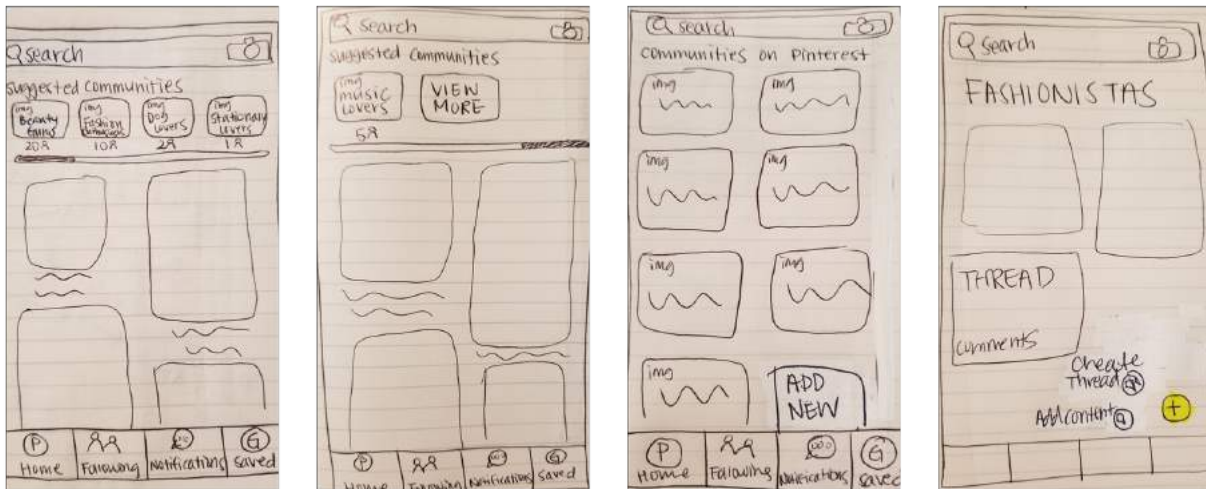 search
suggested communities
img img img img
Beauty Fashion Dog Stationary
lovers lovers
20 10 2 1
P G
Home Following Notifications saved
search
suggested communities
img
music
lovers
VIEW
MORE
5
P G
Home Notifications Saved
search
communities on Pinterest
img img
img img
img img
img
ADD
NEW
P G
Home Following Notifications saved
search
FASHIONISTAS
THREAD
comments
Create
Thread
Add content
+